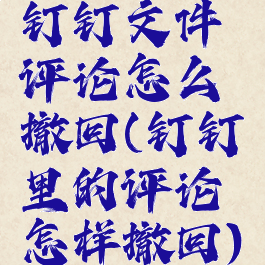 钉钉文件
评论怎么
撤回(钉钉
里的评论
怎样撤回)